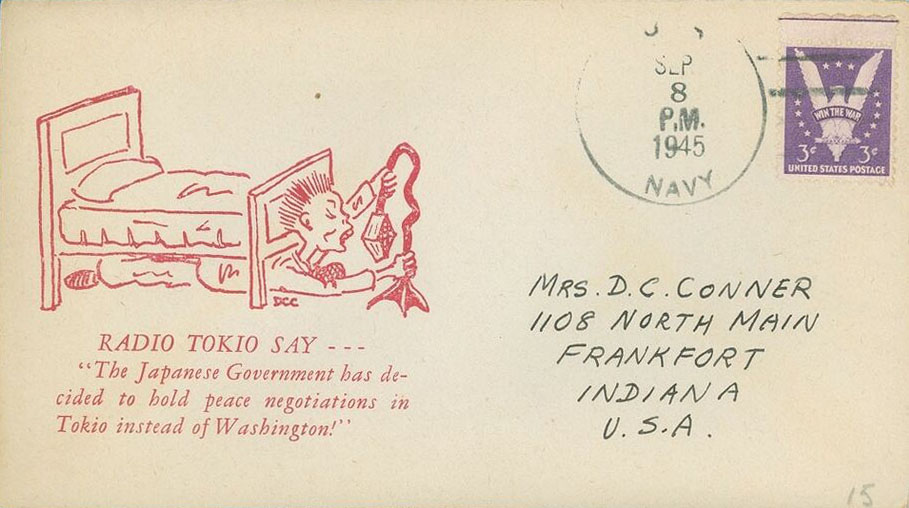 SEP
8
P.M.
1945
NAVY
WIN THE WAR
3¢ 3¢
UNITED STATES POSTAGE
DCC
RADIO TOKIO SAY ---
"The Japanese Government has de-
cided to hold peace negotiations in
Tokio instead of Washington!"
MRS. D. C. CONNER
1108 NORTH MAIN
FRANKFORT
INDIANA
U. S. A.
15